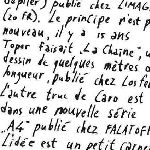 Japlier) publié chez L'IMAG
(20 FR). Le principe n'est p
nouveau, il y a 15 ans
Topor faisait "La Chaîne", u
dessin de quelques mètres d
longueur, publié chez Losfe
L'autre truc de Caro est
dans une nouvelle série
"A4" publié chez FALATOFF
L'idée est un petit carne